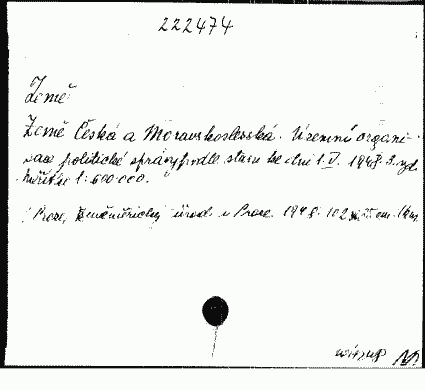 222474
Země
Země Česká a Moravskoslezská. Územní organi-
sace politické správy podle stavu ke dni 1.V. 1948. 3. vyd.
Měřítko 1:600.000.
Praze, Zeměměřický úřad v Praze. 1948. 102 cm.